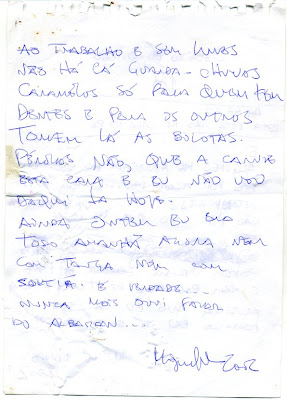 AO TRABALHO E SEM LUVAS
NÃO HÁ CÁ GUARDA-CHUVAS
CARAMÉLOS SÓ PARA QUEM TEM
DENTES E PARA OS OUTROS
TOMEM LÁ AS BOLOTAS.
NÃO, QUE A CARNE
ESTA CARA E EU NÃO VOU
DAQUI JA HOJE.
AINDA ONTEM EU ERA
TODO AMANHÃ AGORA NEM
COM TANGA NEM COM
E VERDADE...
NUNCA MAIS OUVI FALAR
DO
Miguel